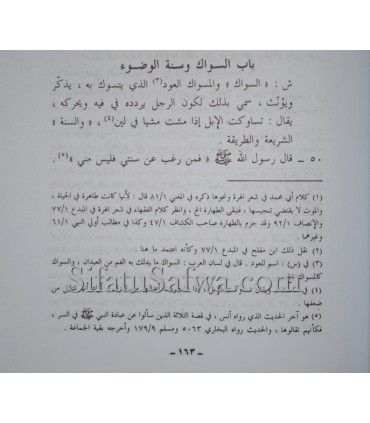 باب السواك وسنة الوضوء
ش : « السواك » والمسواك العود(٣) الذي يتسوك به ، يذكّر
ويؤنّث ، سمي بذلك لكون الرجل يردده في فيه ويحركه ،
يقال : تساوكت الإبل إذا مشت مشيا في لين(٤) ، « والسنة »
الشريعة والطريقة .
٥٠ – قال رسول الله ﷺ « فمن رغب عن سنتي فليس مني »(٥) .
(١) كلام أبي محمد في شعر الهرة ونحوها ذكره في المغني ٨١/١ قال : لأنها كانت طاهرة في الحياة ،
والموت لا يقتضي تنجيسها ، فتبقى الطهارة الخ ، وانظر كلام الفقهاء في شعر الهرة في المبدع ٧٧/١
والإنصاف ٩٢/١ وقد جزم بالطهارة صاحب الكشاف ٤٧/١ وكذا في مطالب أولي النهى ٦٨/١
وغيرهما .
(٢) نقل ذلك ابن مفلح في المبدع ٧٧/١ وكأنه اعتمد ما هنا .
(٣) في (س) : اسم للعود . قال في لسان العرب : السواك ما يدلك به الفم من العيدان ، والسواك
كالمسواك الخ
(٤) في من
ضعفها .
(٥) هو آخر الحديث الذي رواه أنس ، في قصة الثلاثة الذين سألوا عن عبادة النبي ﷺ في السر ،
فكأنهم تقالوها ، والحديث رواه البخاري ٥٠٦٣ ومسلم ١٧٩/٩ وأخرجه بقية الجماعة .
– ١٦٣ –
SifatuSafwa.com